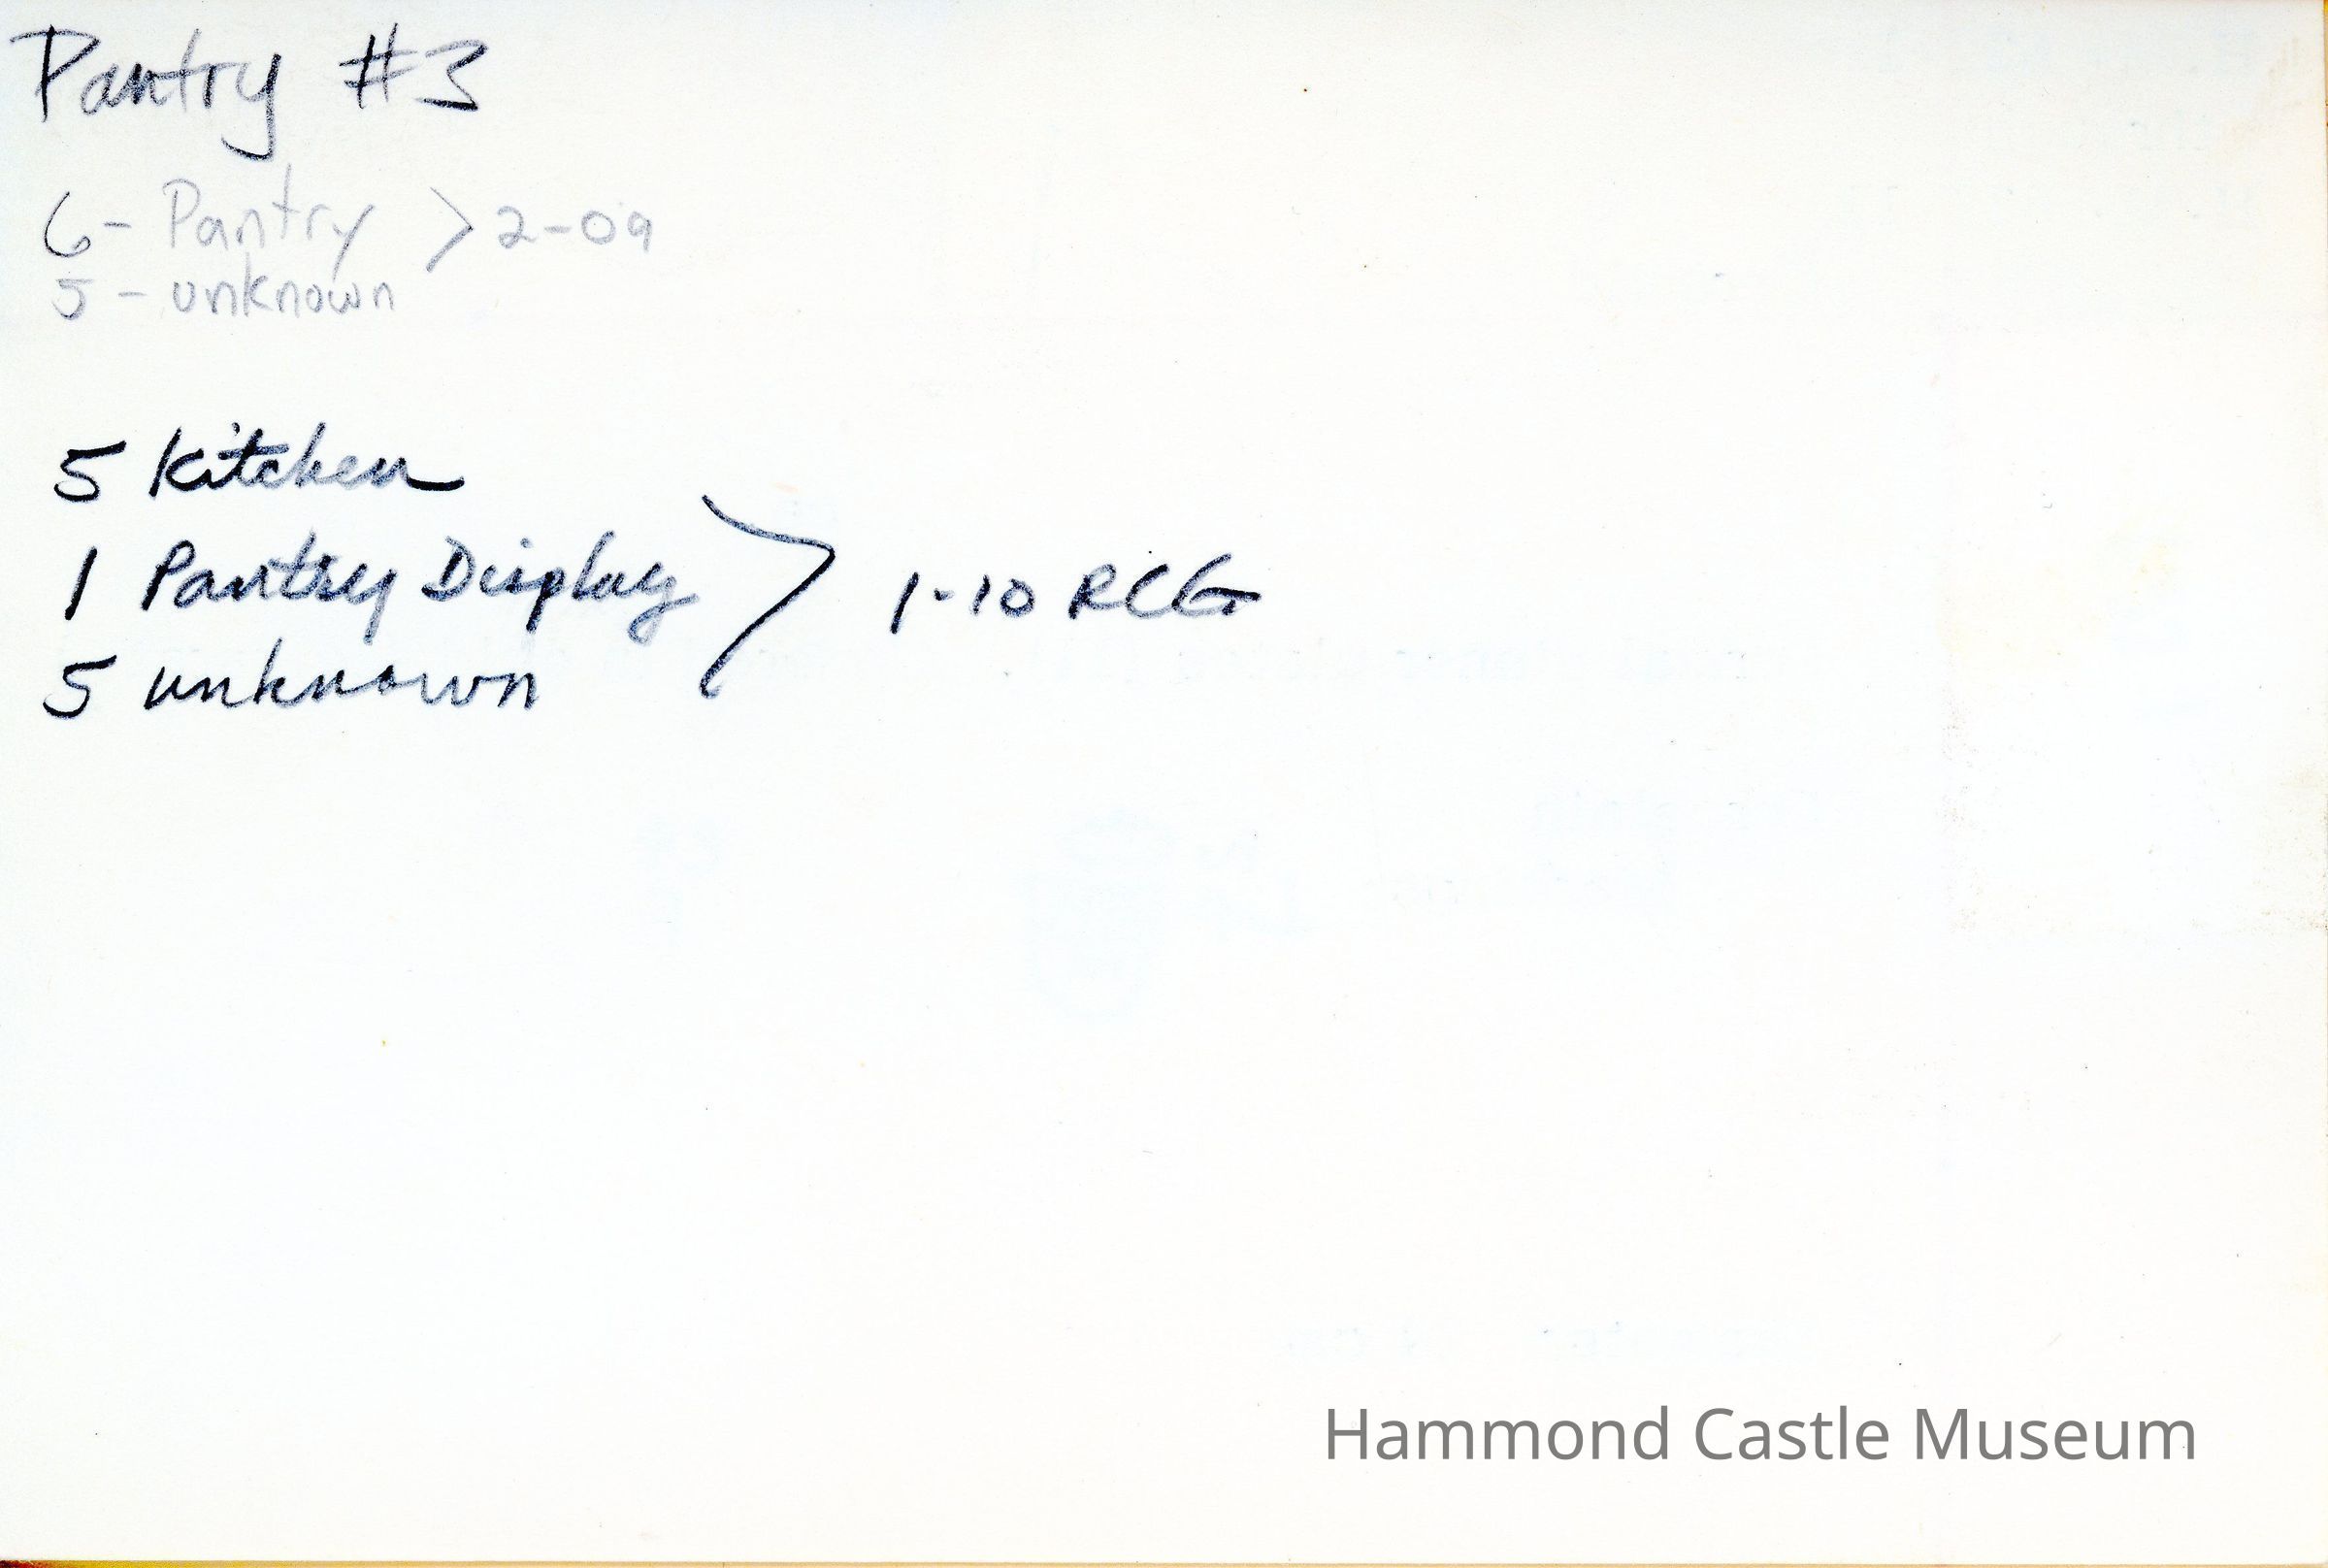 Pantry #3
6- Pantry > 2-09
5 - unknown
5 Kitchen
1 Pantry Display > 1-10 RCG
5 unknown
Hammond Castle Museum